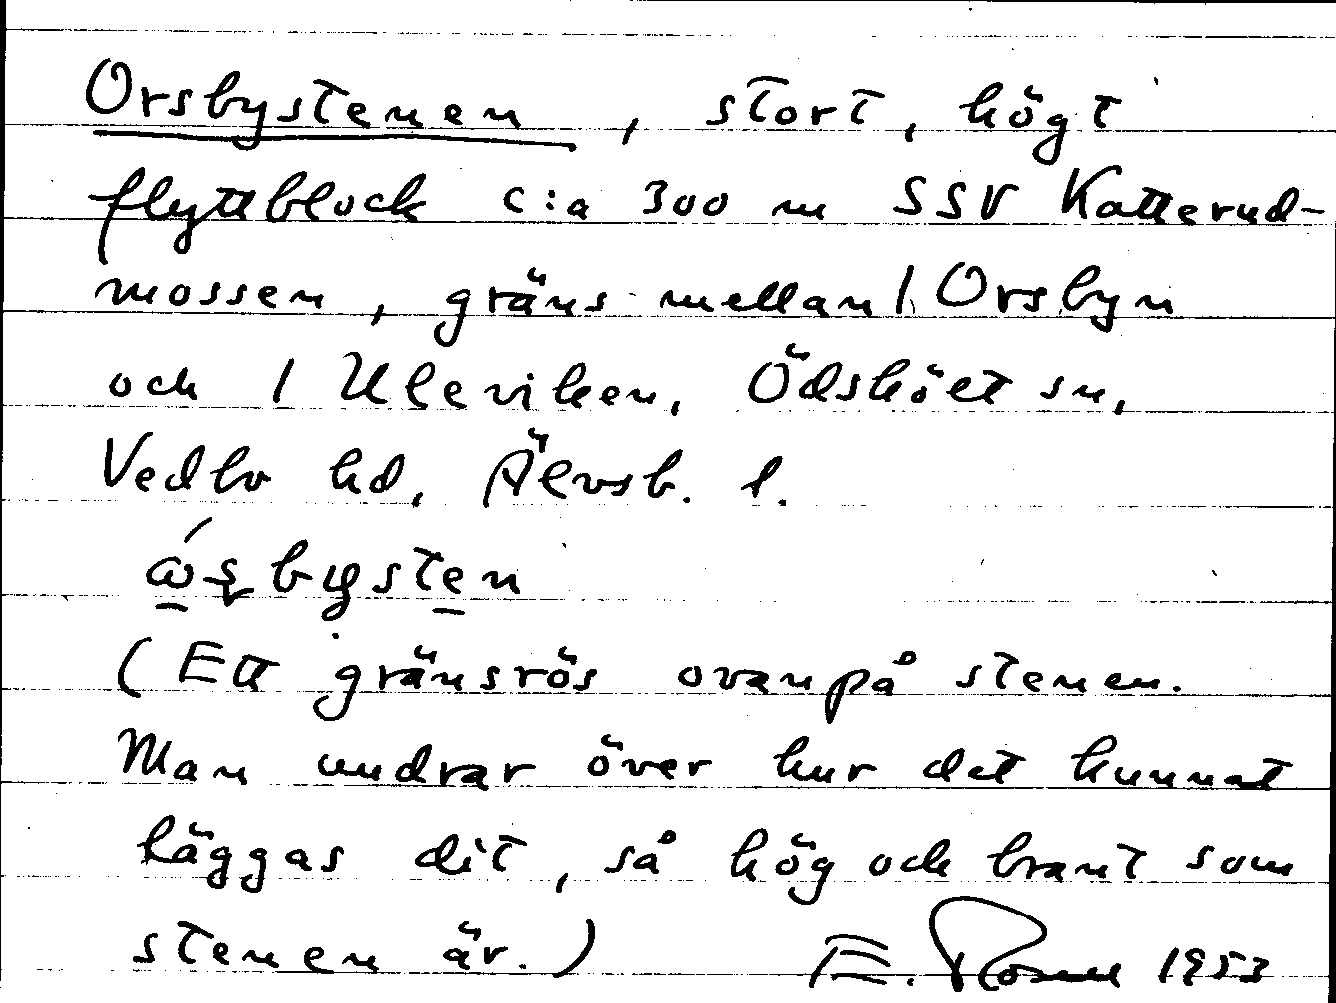 Orsbystenen, stort, högt
flyttblock c:a 300 m SSV Katterud-
mossen, gräns mellan / Orsbyn
och / Uleviken, Ödskölt sn,
Vedbo hd, Älvsb. l.
(Ett gränsrös ovanpå stenen.
Man undrar över hur det kunnat
läggas dit, så hög och brant som
stenen är.) E. Rosell 1953